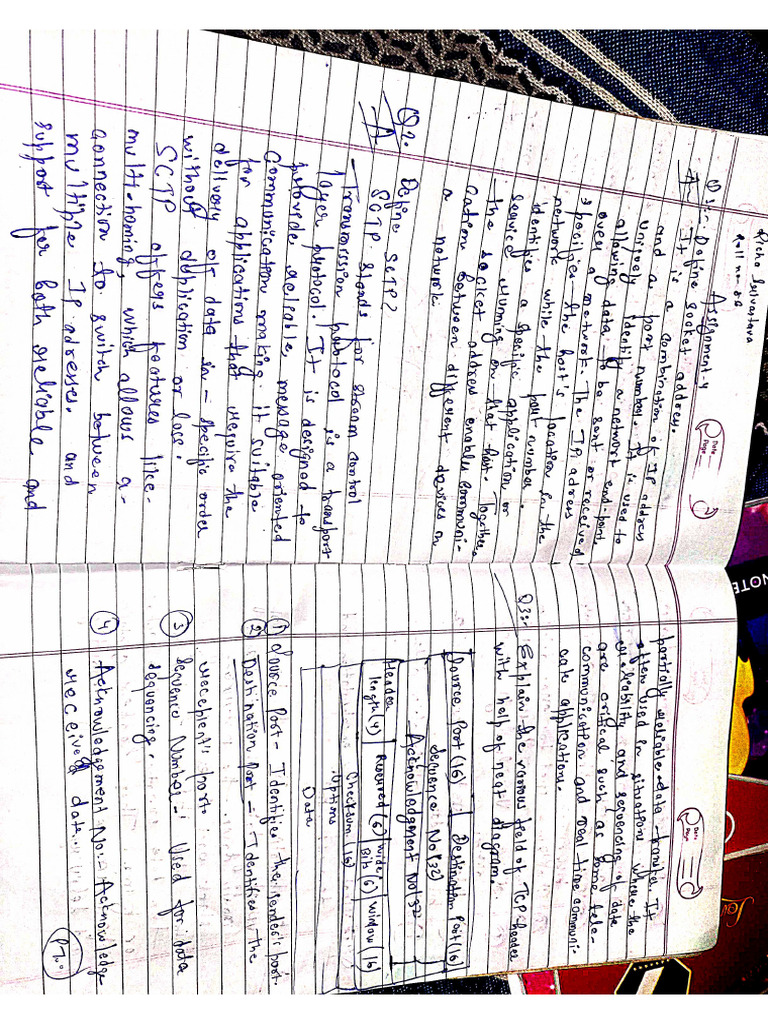 Richa Srivastava
Roll no - 56
Date
Page
Assignment-4
Q1:- Define socket address.
A- It is a combination of IP address
and a port number. It is used to
uniquely identify a network end-point,
allowing data to be sent or received
over a network. The IP address
specifies the host's location in the
network while the port number
identifies a specific application or
service running on that host. Together,
the socket address enables communi-
cation between different devices in
a network.
Q2. Define SCTP?
A SCTP stands for stream control
-Transmission protocol is a transport
layer protocol. It is designed to
provide reliable, message oriented
communication making it suitable
for applications that require the
delivery of data in - specific order
without duplication or loss.
SCTP offers features like-
multi-homing, which allows a-
connection to switch between
multiple IP adresse. and
support for both reliable and
Date
Page
partially reliable data-
often used in situations where the
reliability and sequencing of data
are critical such as some tele-
communication and real time communi-
cate application.
Q3:- Explain the various field of TCP header
with help of neat diagram.
Source Port (16) Destination Port (16)
sequence No (32)
Acknowledgment No (32
Header
length (4) Reserved (6) Bits (6) window (16)
Checksum (16)
Options
Data
1 Source Port - Identifies the sender's port.
2 Destination Port - Identifies the
recepient's port.
3 Sequence Number - Used for data
sequencing.
4 Acknowledgement No:- Acknowledge
received data.
P.T.O
NOTE